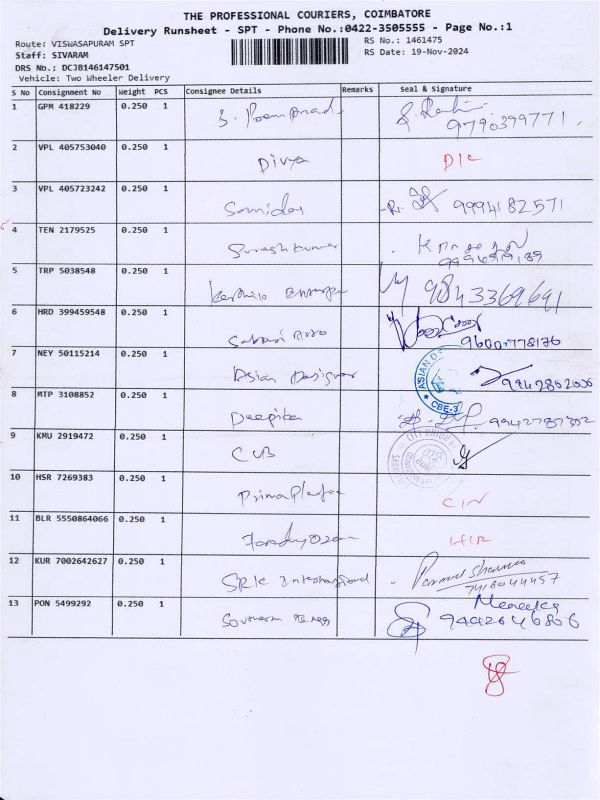 THE PROFESSIONAL COURIERS, COIMBATORE
Delivery Runsheet - SPT - Phone No.:0422-3505555 - Page No.:1
Route: VISWASAPURAM SPT
RS No.: 1461475
Staff: SIVARAM
RS Date: 19-Nov-2024
DRS No.: DCJB146147501
Vehicle: Two Wheeler Delivery
S No Consignment No Weight PCS Consignee Details Remarks Seal & Signature
1 GPM 418229 0.250 1
9790399771
2 VPL 405753040 0.250 1 Divya D/L
3 VPL 405723242 0.250 1 9994182571
4 TEN 2179525 0.250 1 Sureshkumar
5 TRP 5038548 0.250 1 9843369691
6 HRD 399459548 0.250 1 Sabari
9600778176
7 NEY 50115214 0.250 1 Asian Designer 9942802006
ASIAN
CBE-3
8 MTP 3108852 0.250 1 Deepika
9 KMU 2919472 0.250 1 CUB
CITY UNION
10 HSR 7269383 0.250 1
11 BLR 5550864066 0.250 1
12 KUR 7002642627 0.250 1 SRK International
7418044457
13 PON 5499292 0.250 1
9442646806